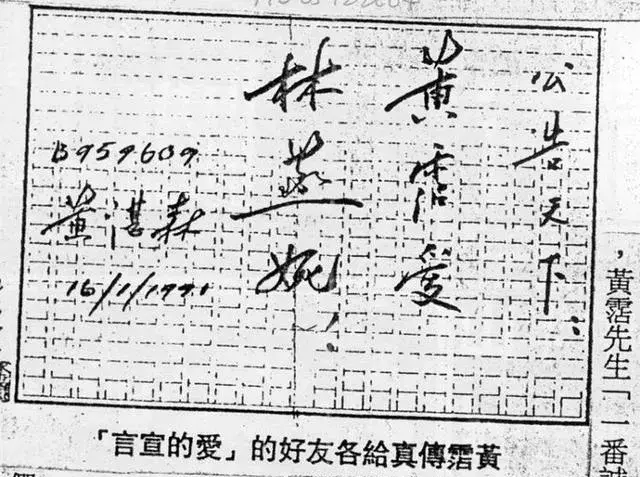 公告天下：
黃霑愛
林燕妮！
B959609
黃湛森
16/1/1991
黃霑傳真給各好友的「愛的宣言」
，黃霑先生「一番誠